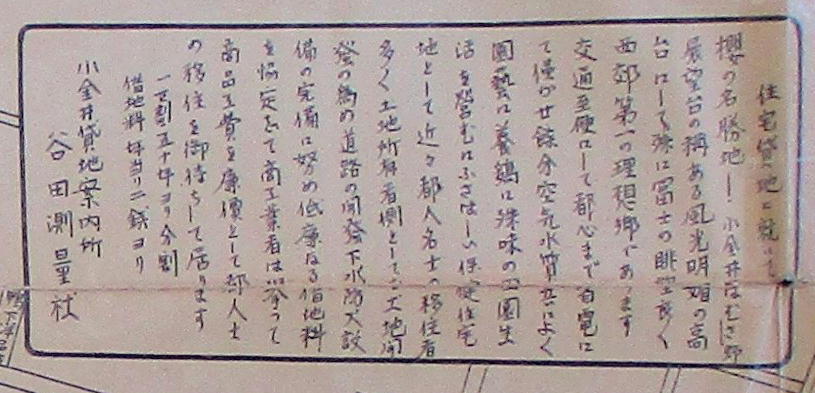 住宅貸地に就いて
櫻の名勝地ー！小金井はむさし野
展望台の稱ある風光明媚の高
台にして殊に冨士の眺望良く
西郊第一の理想郷であります
交通至便にして都心まで省電に
て僅か廿餘分空気水質共によく
園藝に養鶏に殊味の田園生
活を営むにふさはしい保健住宅
地として近々都人名士の移住者
多く土地所有者側としても土地開
發の為め道路の開發下水防火設
備の完備に努め低廉なる借地料
を協定をて商工業者は挙って
商品工費を廉價として都人士
の移住を御待ちして居ります
一区割五十坪ヨリ分割
借地料坪当り二銭ヨリ
小金井貸地案内所
谷田測量社